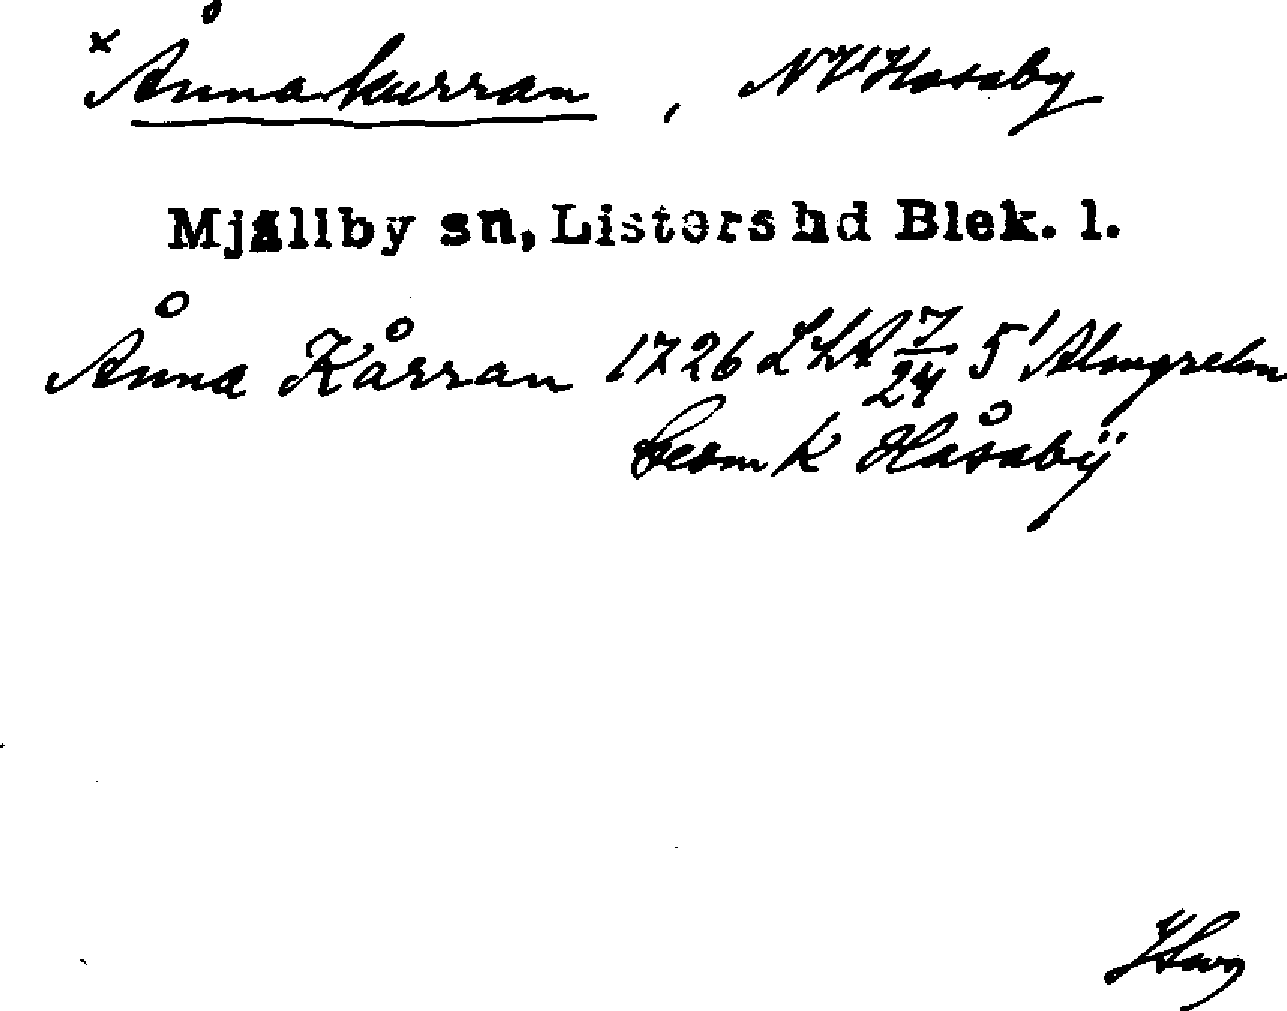 × Ånnakurran, NV Hosaby
Mjällby sn, Listers hd Blek. l.
Ånna Kårran 1726 LLA 7/24 5
Geom K Håsabÿ